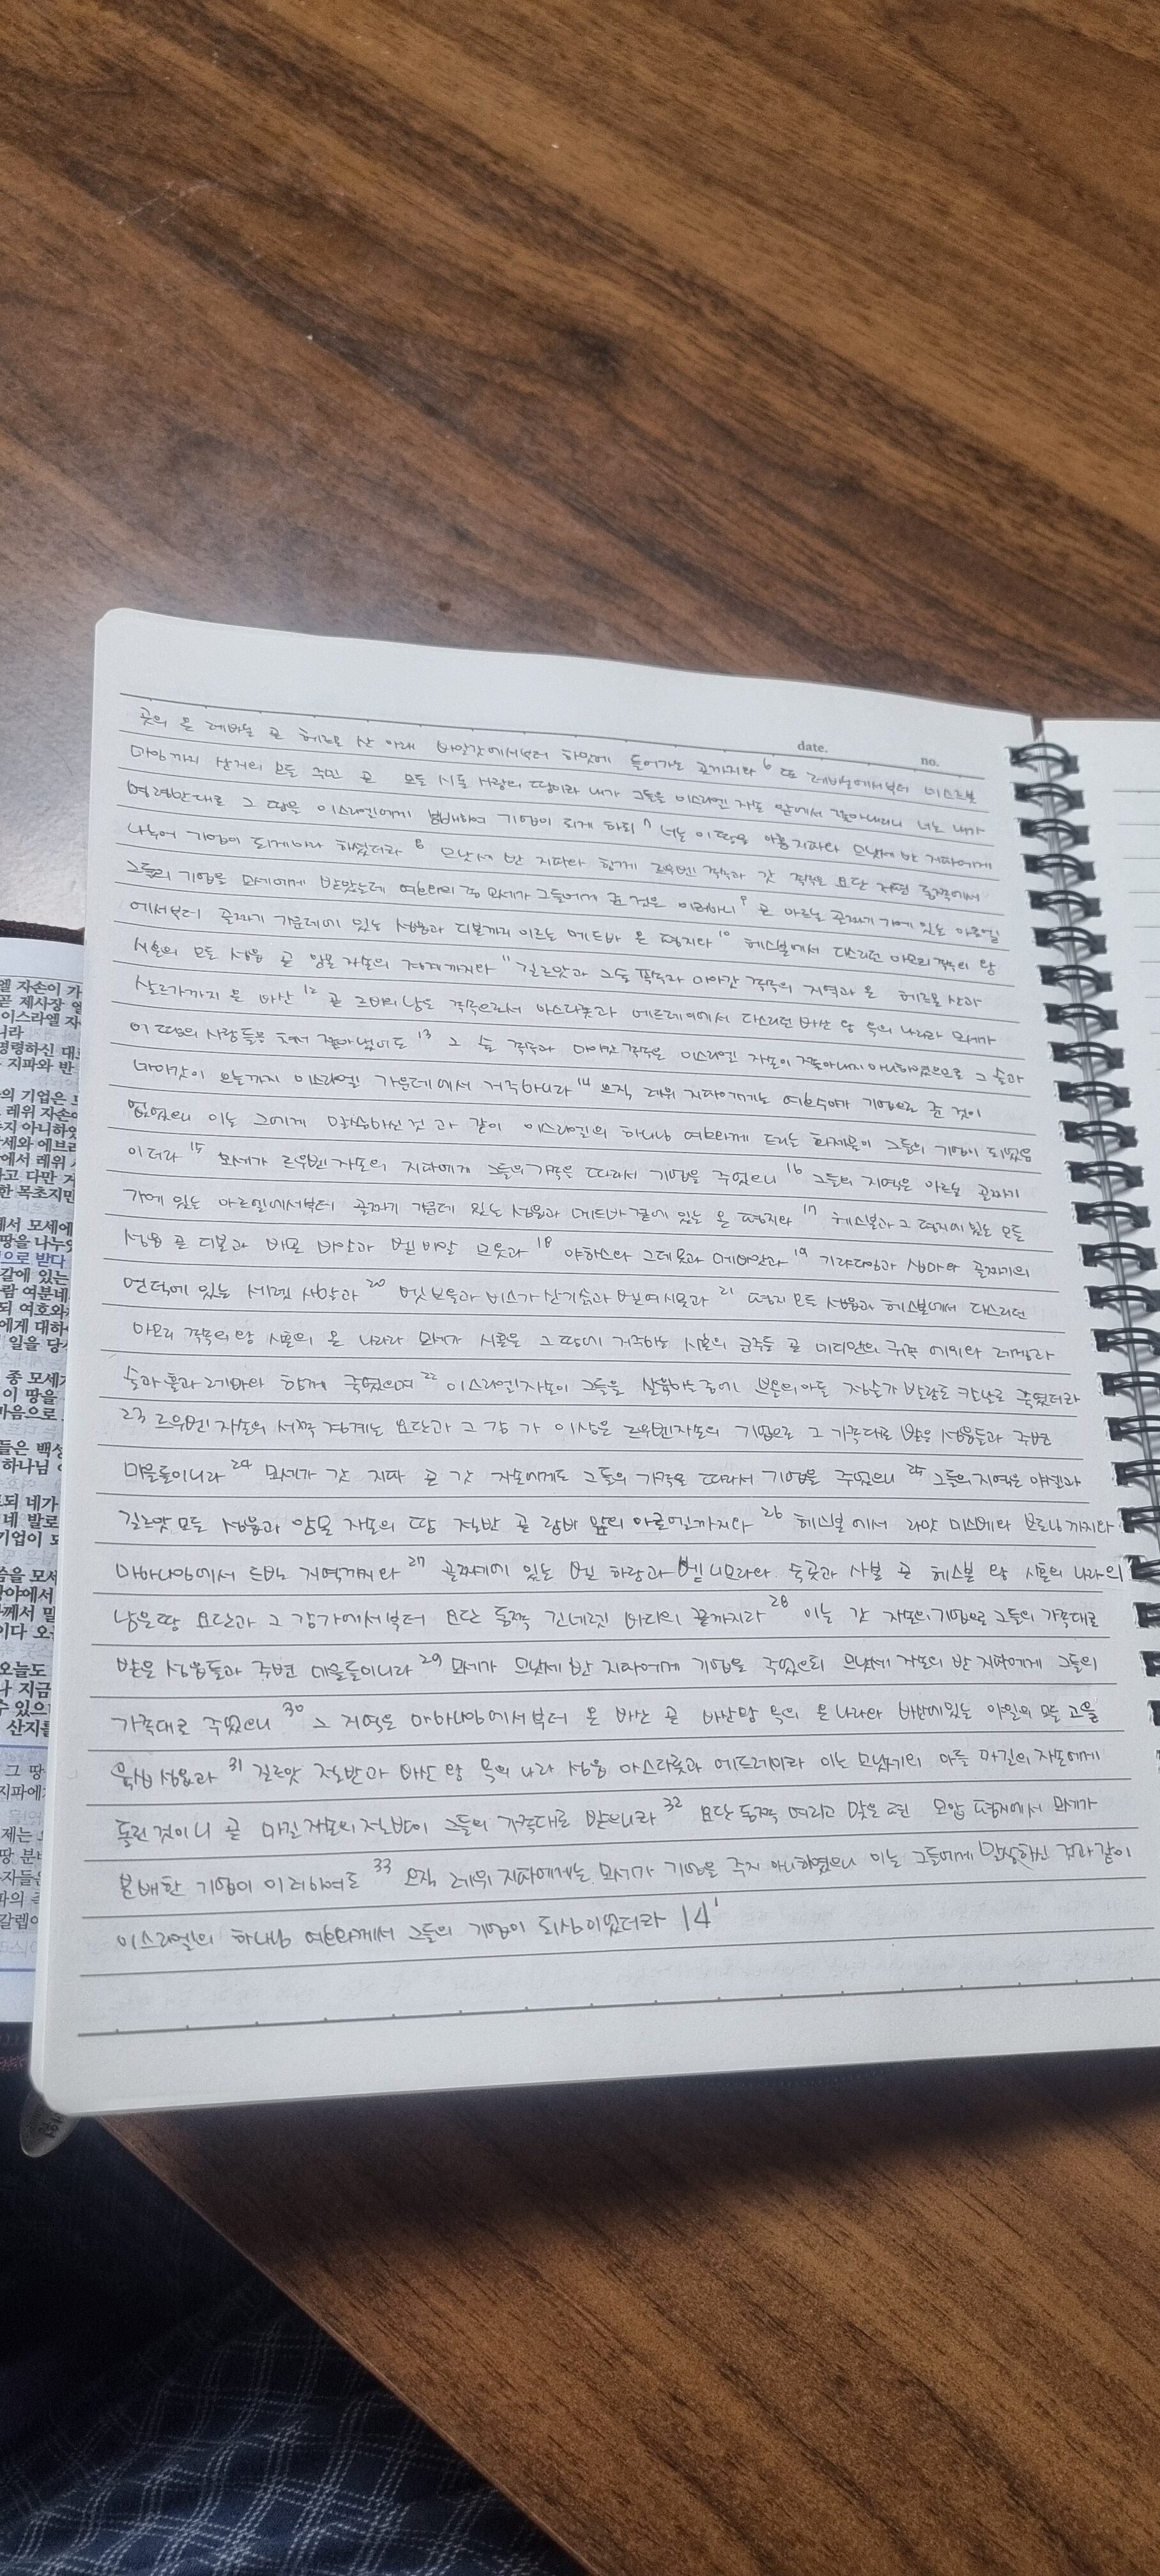 date.
no.
곳의 온 레바논 곧 헤르몬 산 아래 바알갓에서부터 하맛에 들어가는 곳까지라 6 또 레바논에서부터 미스르봇
마임까지 산거의 모든 주민 곧 모든 시돈 사람의 땅이라 내가 그들을 이스라엘 자손 앞에서 쫓아내리니 너는 내가
명령한대로 그 땅을 이스라엘에게 분배하여 기업이 되게 하되 7 너는 이 땅을 아홉 지파와 므낫세 반 지파에게
나누어 기업이 되게하라 하셨더라 8 므낫세 반 지파와 함께 르우벤 족속과 갓 족속은 요단 저편 동쪽에서
그들의 기업을 모세에게 받았는데 여호와의 종 모세가 그들에게 준 것은 이러하니 9 곧 아르논 골짜기 가에 있는 아로엘
에서부터 골짜기 가운데에 있는 성읍과 디본까지 이르는 메드바 온 평지와 10 헤스본에서 다스리던 아모리 족속의 왕
시혼의 모든 성읍 곧 암몬 자손의 경계까지와 11 길르앗과 그술 족속과 마아갓 족속의 지역과 온 헤르몬 산과
살르가까지 온 바산 12 곧 르바의 남은 족속으로서 아스다롯과 에드레이에서 다스리던 바산 왕 옥의 나라라 모세가
이 땅의 사람들을 쳐서 쫓아냈어도 13 그 술 족속과 마아갓 족속은 이스라엘 자손이 쫓아내지 아니하였으므로 그 술과
마아갓이 오늘까지 이스라엘 가운데에서 거주하니라 14 오직 레위 지파에게는 여호수아가 기업으로 준 것이
없었으니 이는 그에게 말씀하신 것 과 같이 이스라엘의 하나님 여호와께 드리는 화제물이 그들의 기업이 되었음
이더라 15 모세가 르우벤 자손의 지파에게 그들의 가족을 따라서 기업을 주었으니 16 그들의 지역은 아르논 골짜기
가에 있는 아로엘에서부터 골짜기 가운데 있는 성읍과 메드바 곁에 있는 온 평지와 17 헤스본과 그 평지에 있는 모든
성읍 곧 디본과 바못 바알과 벧 바알 므온과 18 야하스와 그데못과 메바앗과 19 기랴다임과 십마와 골짜기의
언덕에 있는 세렛 사할과 20 벳 브올과 비스가 산기슭과 벧여시못과 21 평지 모든 성읍과 헤스본에서 다스리던
아모리 족속의 왕 시혼의 온 나라라 모세가 시혼을 그 땅에 거주하는 시혼의 군주들 곧 미디안의 귀족 에위와 레겜과
술과 훌과 레바와 함께 죽였으며 22 이스라엘 자손이 그들을 살육하는 중에 브올의 아들 점술가 발람도 칼날로 죽였더라
23 르우벤 자손의 서쪽 경계는 요단과 그 강 가 이상은 르우벤자손의 기업으로 그 가족대로 받은 성읍들과 주변
마을들이니라 24 모세가 갓 지파 곧 갓 자손에게도 그들의 가족을 따라서 기업을 주었으니 25 그들의 지역은 야셀과
길르앗 모든 성읍과 암몬 자손의 땅 절반 곧 랍바 앞의 아로엘까지와 26 헤스본에서 라맛 미스베와 브도님까지와
마하나임에서 드빌 지역까지와 27 골짜기에 있는 벧 하람과 벧 니므라와 숙곳과 사본 곧 헤스본 왕 시혼의 나라의
남은땅 요단과 그 강가에서부터 요단 동쪽 긴네렛 바다의 끝까지라 28 이는 갓 자손의 기업으로 그들의 가족대로
받은 성읍들과 주변 마을들이니라 29 모세가 므낫세 반 지파에게 기업을 주었으되 므낫세 자손의 반 지파에게 그들의
가족대로 주었으니 30 그 지역은 마하나임에서부터 온 바산 곧 바산왕 옥의 온 나라와 바산에있는 야일의 모든 고을
육십 성읍과 31 길르앗 절반과 바산 왕 옥의 나라 성읍 아스다롯과 에드레이라 이는 므낫세의 아들 마길의 자손에게
돌린 것이니 곧 마길 자손의 절반이 그들의 가족대로 받으니라 32 요단 동쪽 여리고 맞은 편 모압 평지에서 모세가
분배한 기업이 이러하여도 33 오직 레위 지파에게는 모세가 기업을 주지 아니하였으니 이는 그들에게 말씀하신 것과 같이
이스라엘의 하나님 여호와께서 그들의 기업이 되심이었더라 14 1